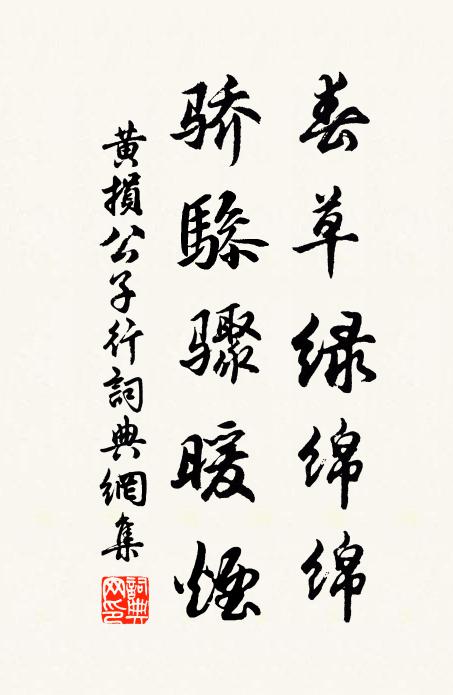 春草绿绵绵
骄驂骤暖煙
黄損公子行詞典網集
詞典网印